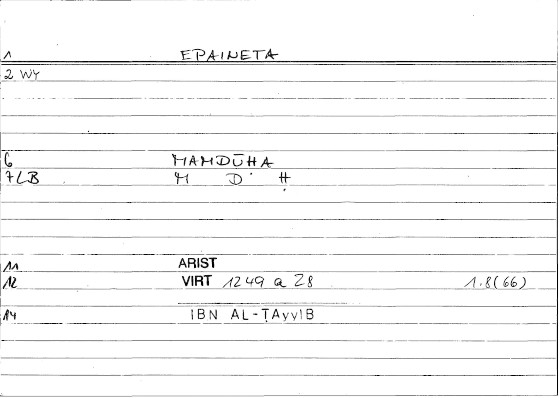 1 EPAINETA
2 WY
6 MAMDŪHA
7 LB M D Ḥ
11 ARIST
12 VIRT 1249 a 28 1.8(66)
14 IBN AL-ṬAyyIB